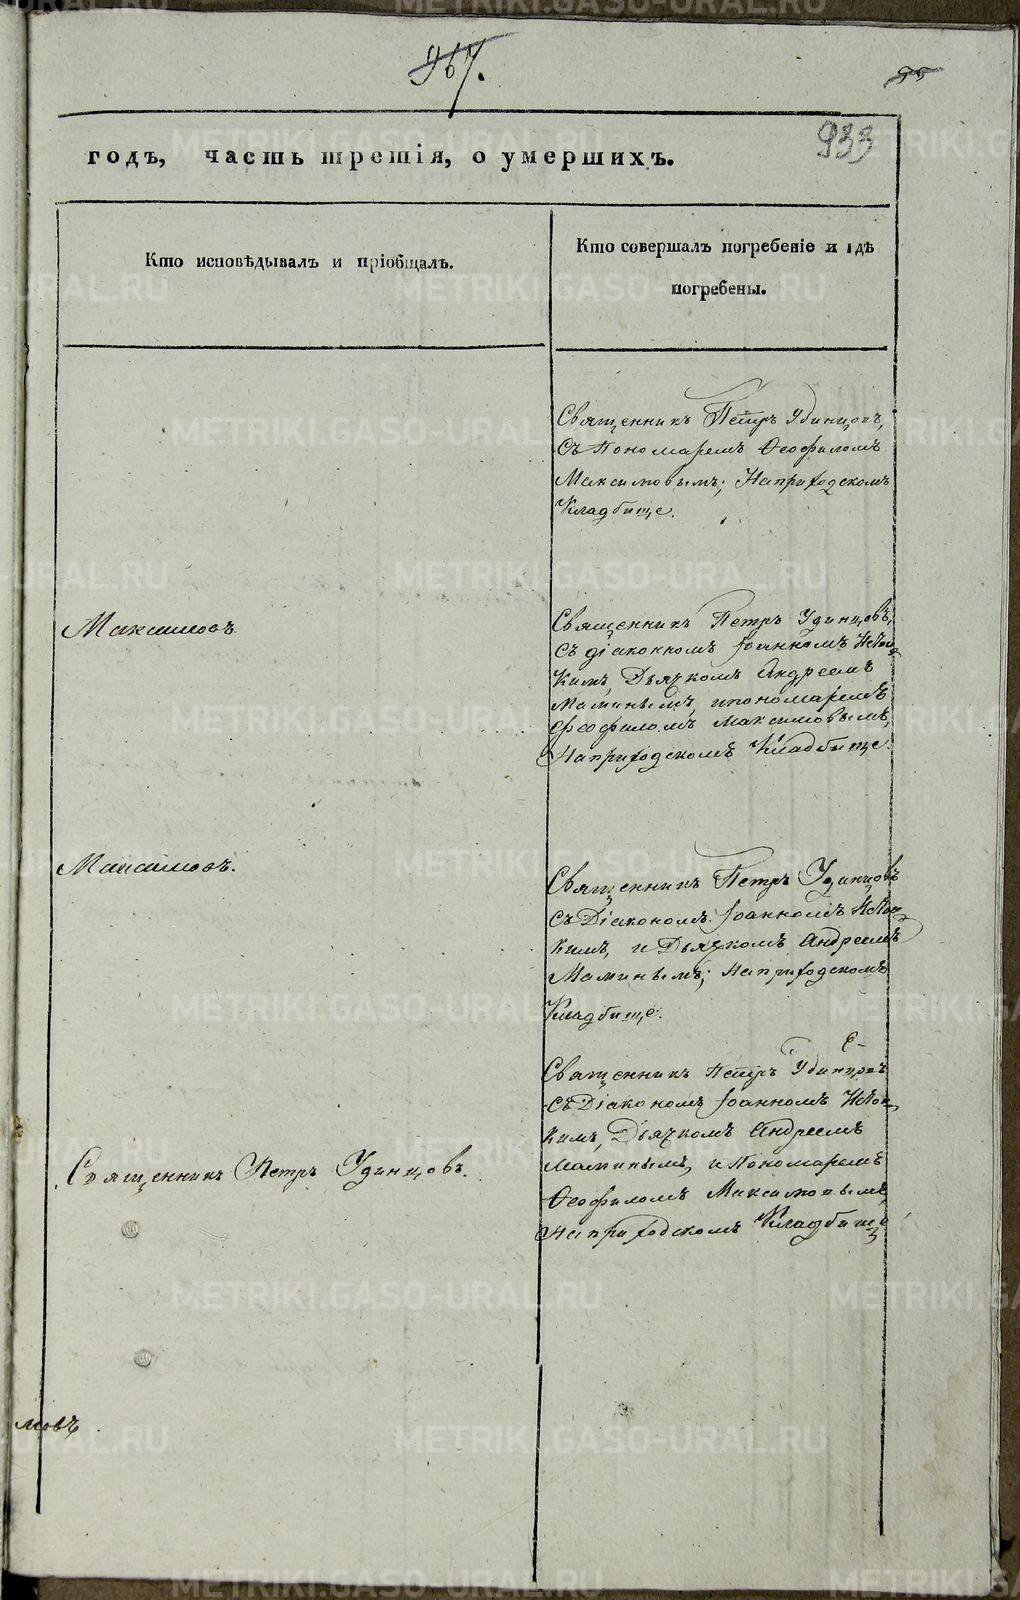 967.
933
годъ, часть третія, о умершихъ.
Кто исповѣдывалъ и пріобщалъ.
Кто совершалъ погребеніе и гдѣ
погребены.
Священникъ Петръ Удинцовъ,
съ Пономаремъ Ѳеофиломъ
Максимовымъ; На приходскомъ
Кладбище.
Максимовъ.
Священникъ Петръ Удинцовъ,
съ діакономъ Іоанномъ
кимъ, Дьячкомъ Андреемъ
Маминымъ, и пономаремъ
Феофиломъ Максимовымъ,
На приходскомъ Кладбище.
Максимовъ.
Священникъ Петръ Удинцовъ
съ Діакономъ Іоанномъ
кимъ, и Дьячкомъ Андреемъ
Маминымъ; на приходскомъ
Кладбище.
Священникъ Петръ Удинцовъ
съ Діакономъ Іоанномъ
кимъ, Дьячкомъ Андреемъ
Маминымъ, и Пономаремъ
Ѳеофиломъ Максимовымъ,
На приходскомъ Кладбище
Священникъ Петръ Удинцовъ.
мовъ
METRIKI.GASO-URAL.RU